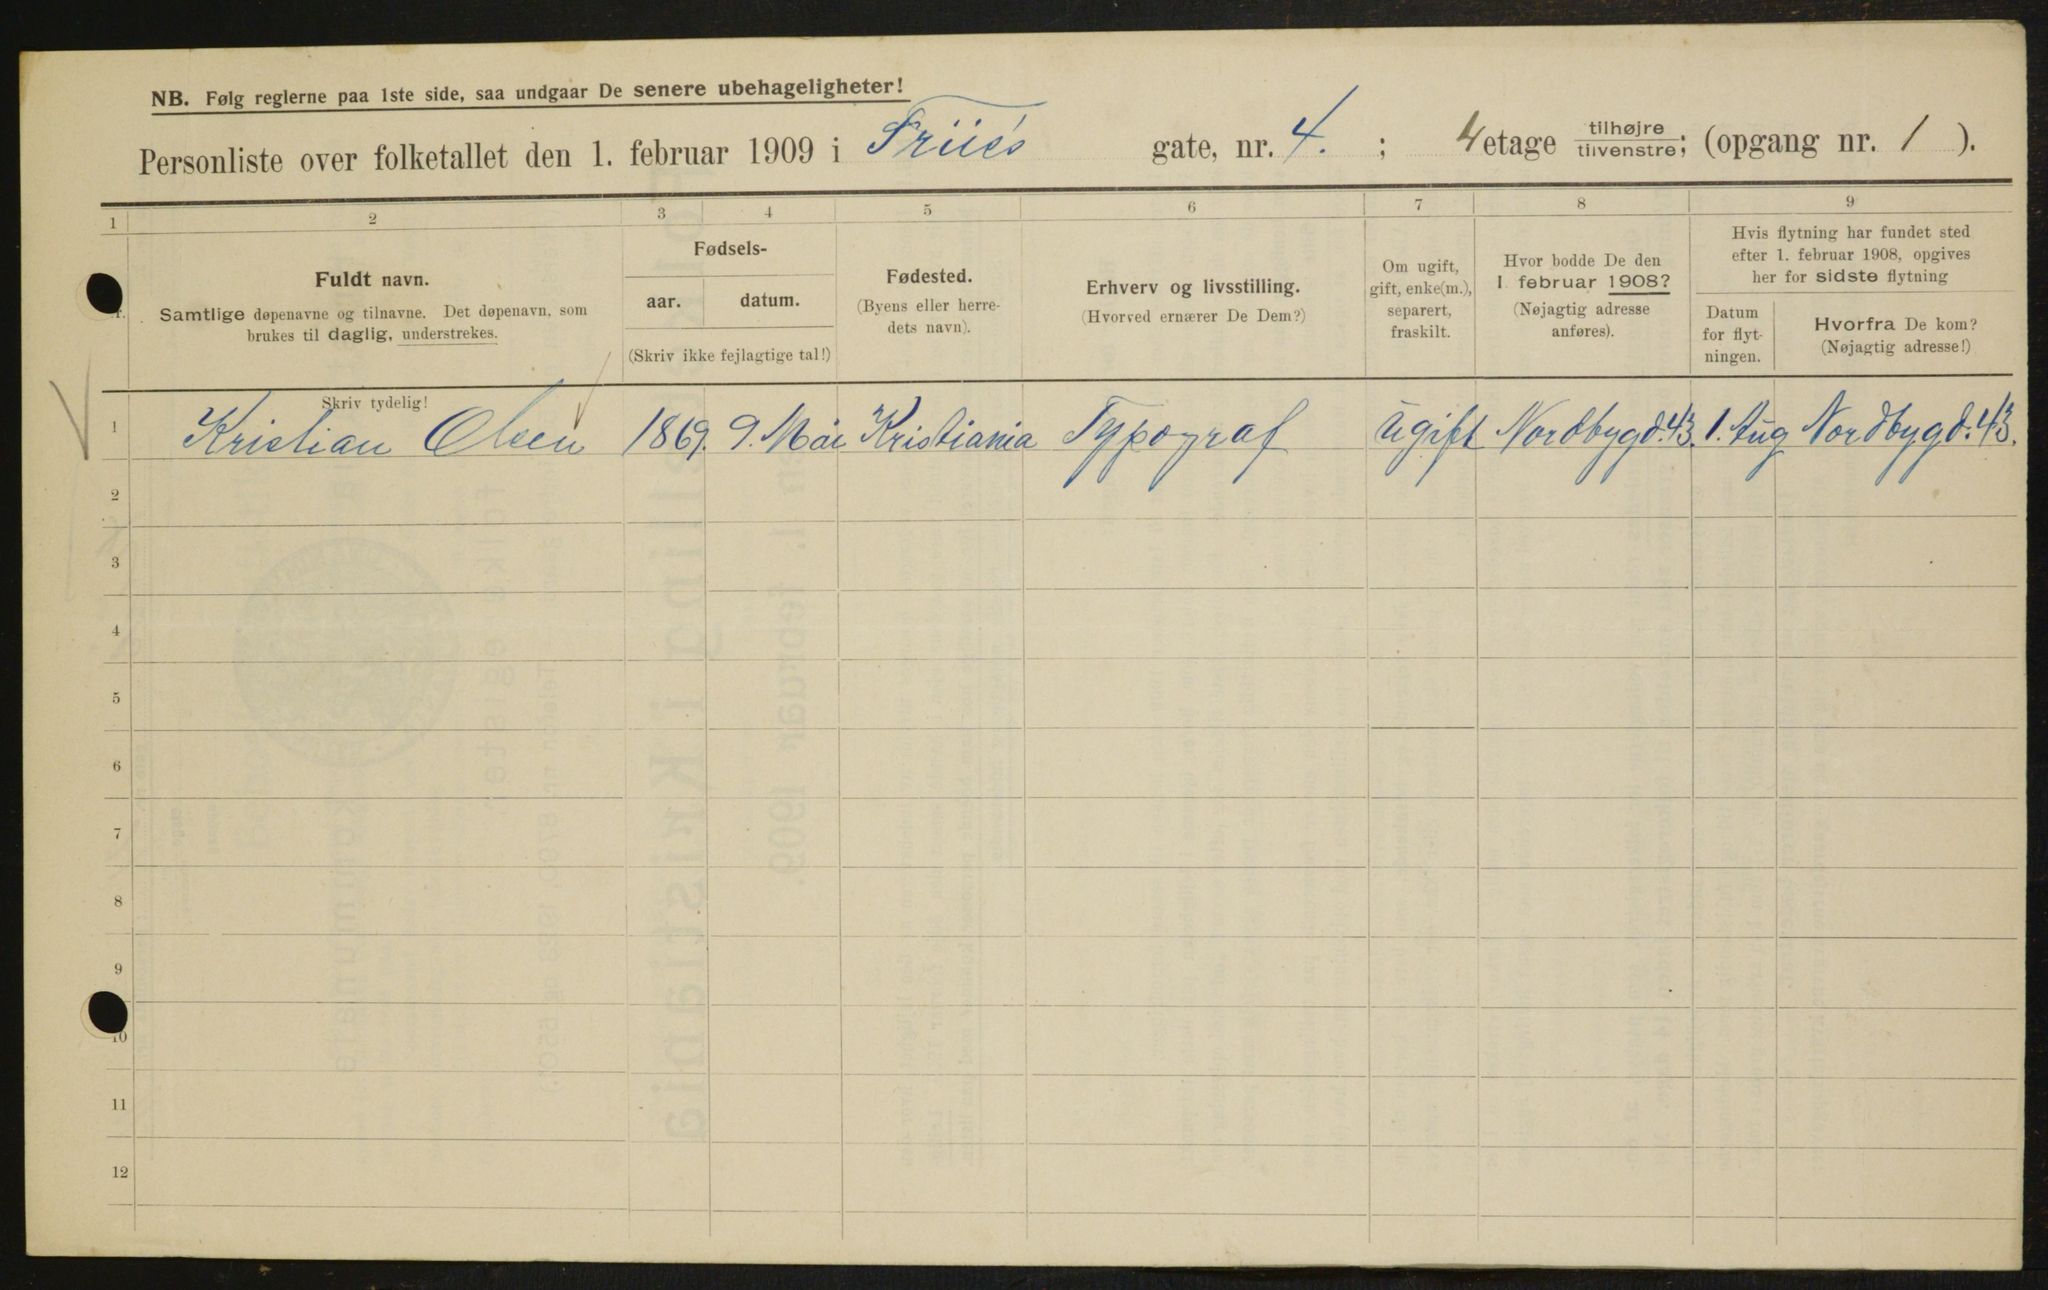 NB. Følg reglerne paa 1ste side, saa undgaar De senere ubehageligheter!
Personliste over folketallet den 1. februar 1909 i Friie's gate, nr. 4. ; 4 etage tilhøjre tilvenstre; (opgang nr. 1 ).
1 2 3 4 5 6 7 8 9
Fuldt navn.
Samtlige døpenavne og tilnavne. Det døpenavn, som
brukes til daglig, understrekes.
Skriv tydelig!
Fødsels-
aar. datum.
(Skriv ikke fejlagtige tal!)
Fødested.
(Byens eller herre-
dets navn).
Erhverv og livsstilling.
(Hvorved ernærer De Dem?)
Om ugift,
gift, enke(m.),
separert,
fraskilt.
Hvor bodde De den
1. februar 1908?
(Nøjagtig adresse
anføres).
Hvis flytning har fundet sted
efter 1. februar 1908, opgives
her for sidste flytning
Datum
for flyt-
ningen.
Hvorfra De kom?
(Nøjagtig adresse!)
1 Kristian Olsen 1869. 9. Mai Kristiania Typograf ugift Nordbygd. 43. 1. Aug Nordbygd. 43.
2
3
4
5
6
7
8
9
10
11
12